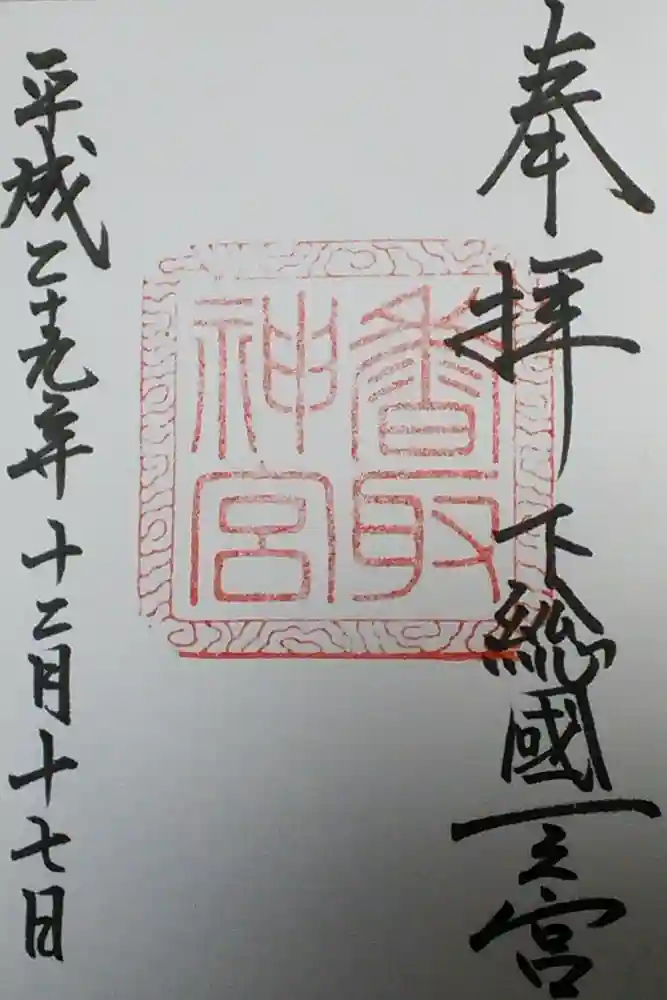 奉拝 下總國一之宮
香取
神宮
平成二十九年十二月十七日